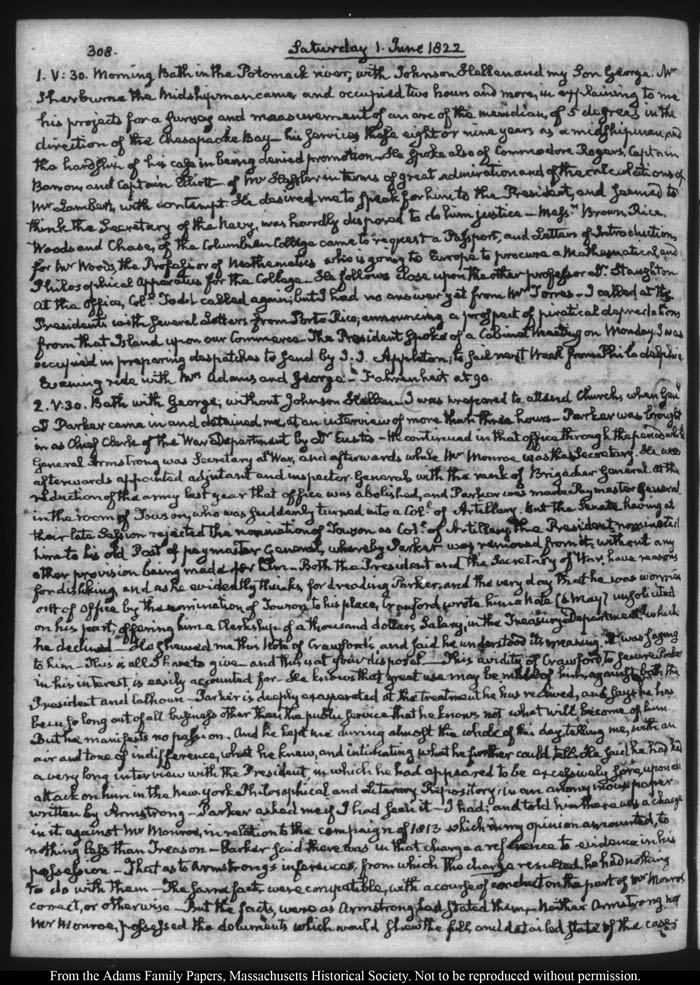 308.
Saturday 1. June 1822
1. V:30. Morning Bath in the Potomack river, with Johnson Hellen and my Son George. Mr
Sherburne the Midshipman came and occupied two hours and more, in explaining to me
his projects for a survey and measurement of an arc of the meridian, of 5 degrees in the
direction of the Chesapeake Bay— his services these eight or nine years as a midshipman, and
the hardship of his case in being denied promotion— He spoke also of Commodore Rogers, Captain
Barron, and Captain Elliott— of Mr Hassler in terms of great admiration and of the calculations of
Mr Lambert, with contempt. He desired me to speak for him to the President, and seemed to
think the Secretary of the Navy, was hardly disposed to do him justice— Messrs Brown, Rice,
Woods and Chase, of the Columbian College came to request a Passport, and Letters of Introduction,
for Mr Woods, the Professor of Mathematics who is going to Europe to procure a Mathematical, and
Philosophical Apparatus for the College. He follows close upon the other professor Dr Staughton
At the Office, Coll. Todd called again; but I had no answer yet from Mr Torres— I called at the
Presidents with several Letters from Porto Rico, announcing a prospect of piratical depredations
from that Island upon our Commerce— The President spoke of a Cabinet Meeting on Monday. I was
occupied in preparing despatches to send by J. J. Appleton; to sail next Week from Philadelphia
Evening ride with Mrs Adams and George— Fahrenheit at 90.
2. V:30. Bath with George; without Johnson Hellen— I was prepared to attend Church, when Genl
D Parker came in and detained me, at an interview of more than three hours— Parker was brought
in as Chief Clerk of the War Department by Dr Eustis— He continued in that office through the period while
General Armstrong was Secretary of War, and afterwards while Mr Monroe was the Secretary. He was
afterwards appointed adjutant and inspector General, with the rank of Brigadier General. At the
reduction of the army last year that office was abolished, and Parker was made Paymaster General
in the room of Towson, who was suddenly turned into a Coll. of Artillery. But the Senate having at
their late Session rejected the nomination of Towson as Coll. of Artillery, the President nominated
him to his old Post of paymaster General, whereby Parker was removed from it, without any
other provision being made for him— Both the President and the Secretary of War, have reasons
for disliking, and as he evidently thinks, for dreading Parker, and the very day that he was worried
out of Office by the nomination of Towson to his place, Crawford wrote him a Note (8 May) unsolicited
on his part, offering him a Clerkship of a thousand dollars Salary, in the Treasury Department, which
he declined— He shewed me this Note of Crawford's, and said he understood its meaning. It was saying
to him— This is all I have to give— and this is at your disposal— This avidity of Crawford, to secure Parker
in his interest is easily accounted for— He knows that great use may be made of him against both the
President and Calhoun— Parker is deeply exasperated at the treatment he has received, and says he has
been so long out of all business other than the public service that he knows not what will become of him
But he manifests no passion. And he kept me during almost the whole of this day, telling me, with an
air and tone of indifference, what he knew, and intimating what he further could tell. He said he has had
a very long interview with the President, in which he had appeared to be excessively sore, upon an
attack on him in the New York Philosophical and Literary Repository, in an anonymous paper
written by Armstrong— Parker asked me if I had seen it— I had; and told him there was a charge
in it against Mr Monroe, in relation to the campaign of 1813 which in my opinion amounted, to
nothing less than Treason— Parker said there was in that charge a reference to evidence in his
possession— That as to Armstrong's inferences, from which the charge resulted, he had nothing
to do with them— The same facts, were compatible, with a course of conduct on the part of Mr Monroe
correct, or otherwise— But the facts, were as Armstrong had stated them, Neither Armstrong nor
Mr Monroe, possessed the documents which would shew the full, and detailed state of the case
From the Adams Family Papers, Massachusetts Historical Society. Not to be reproduced without permission.